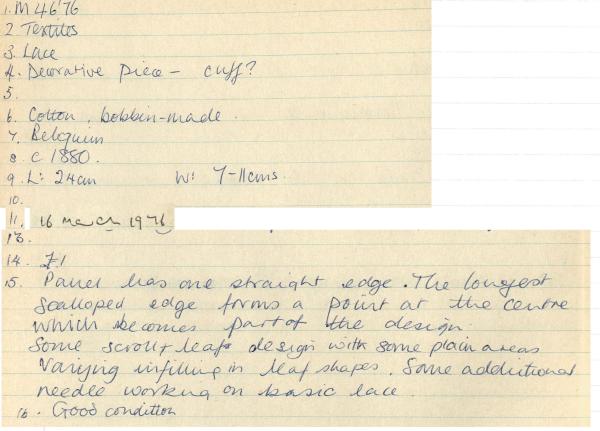 1. M 46'76
2 Textiles
3. Lace
4. Decorative piece - cuff?
5.
6. Cotton, bobbin-made.
7. Belgium
8 c 1880.
9. L: 24cm W: 7-11cms.
10.
11. 16 march 1976
13.
14. £1
15. Panel has one straight edge. The longest
scalloped edge forms a point at the centre
which becomes part of the design.
Some scroll & leaf design with some plain areas
Varying infilling in leaf shapes. Some additional
needle working on basic lace.
16. Good condition